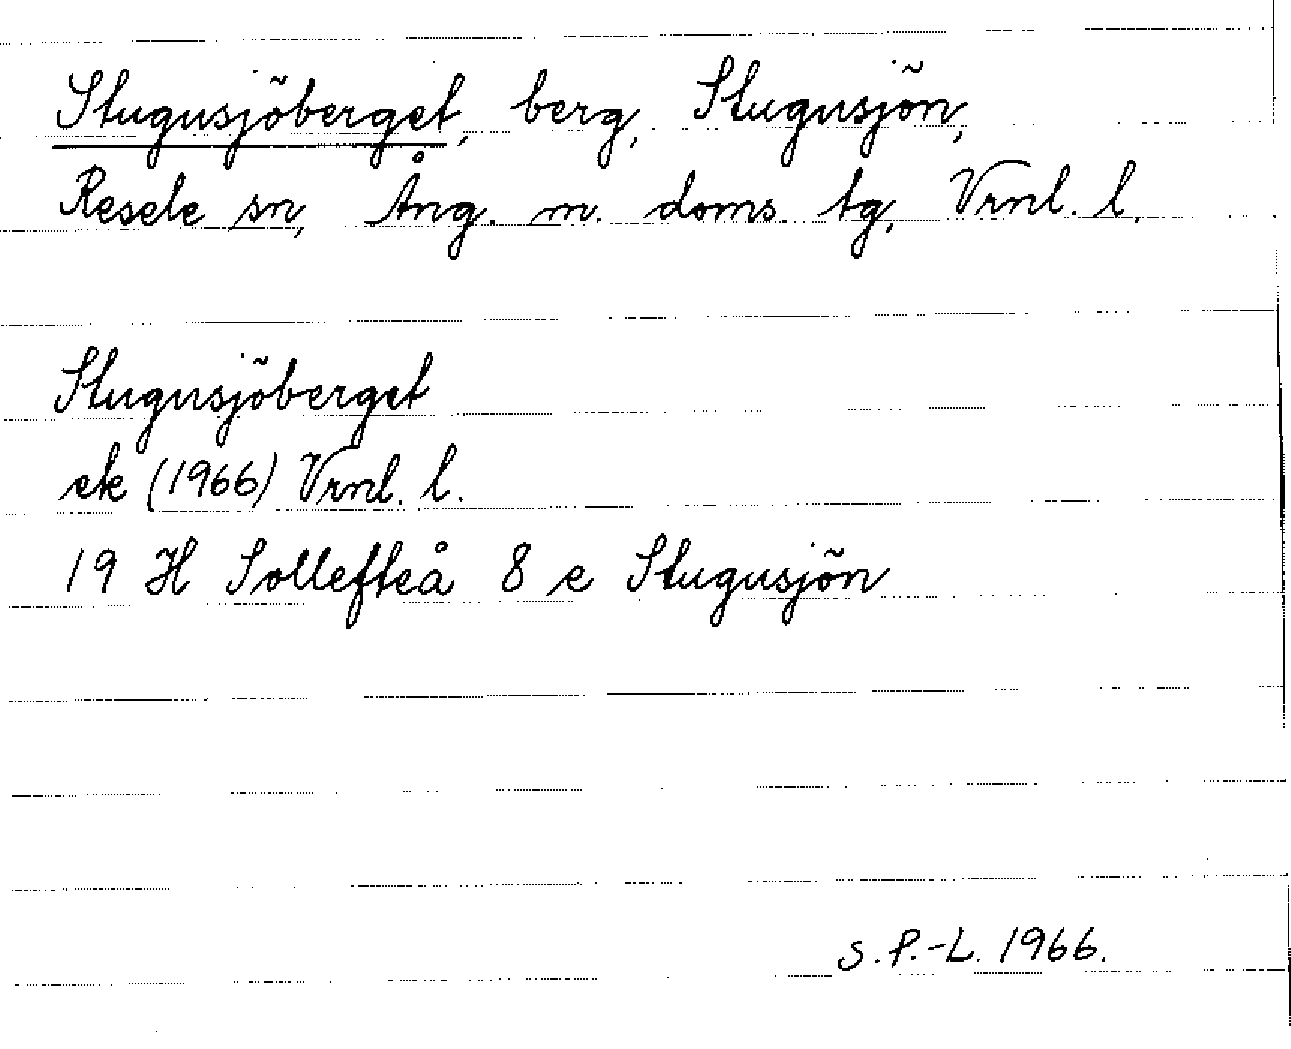 Stugusjöberget, berg, Stugusjön,
Resele sn, Ång. m. doms. tg, Vrnl. l.
Stugusjöberget
ek (1966) Vrnl. l.
19 H Sollefteå 8 e Stugusjön
S. P.-L. 1966.